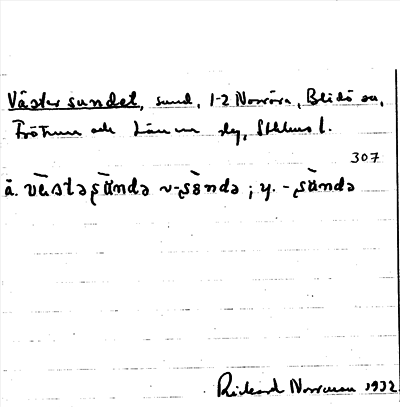 Västersundet, sund, 1-2 Norröra, Blidö sn,
Frötuna och Länna slg, Sthlms l.
307
ä. västəʂundə ~ -ʂøndə ; y. -ʂundə
Rickard Norrman 1932